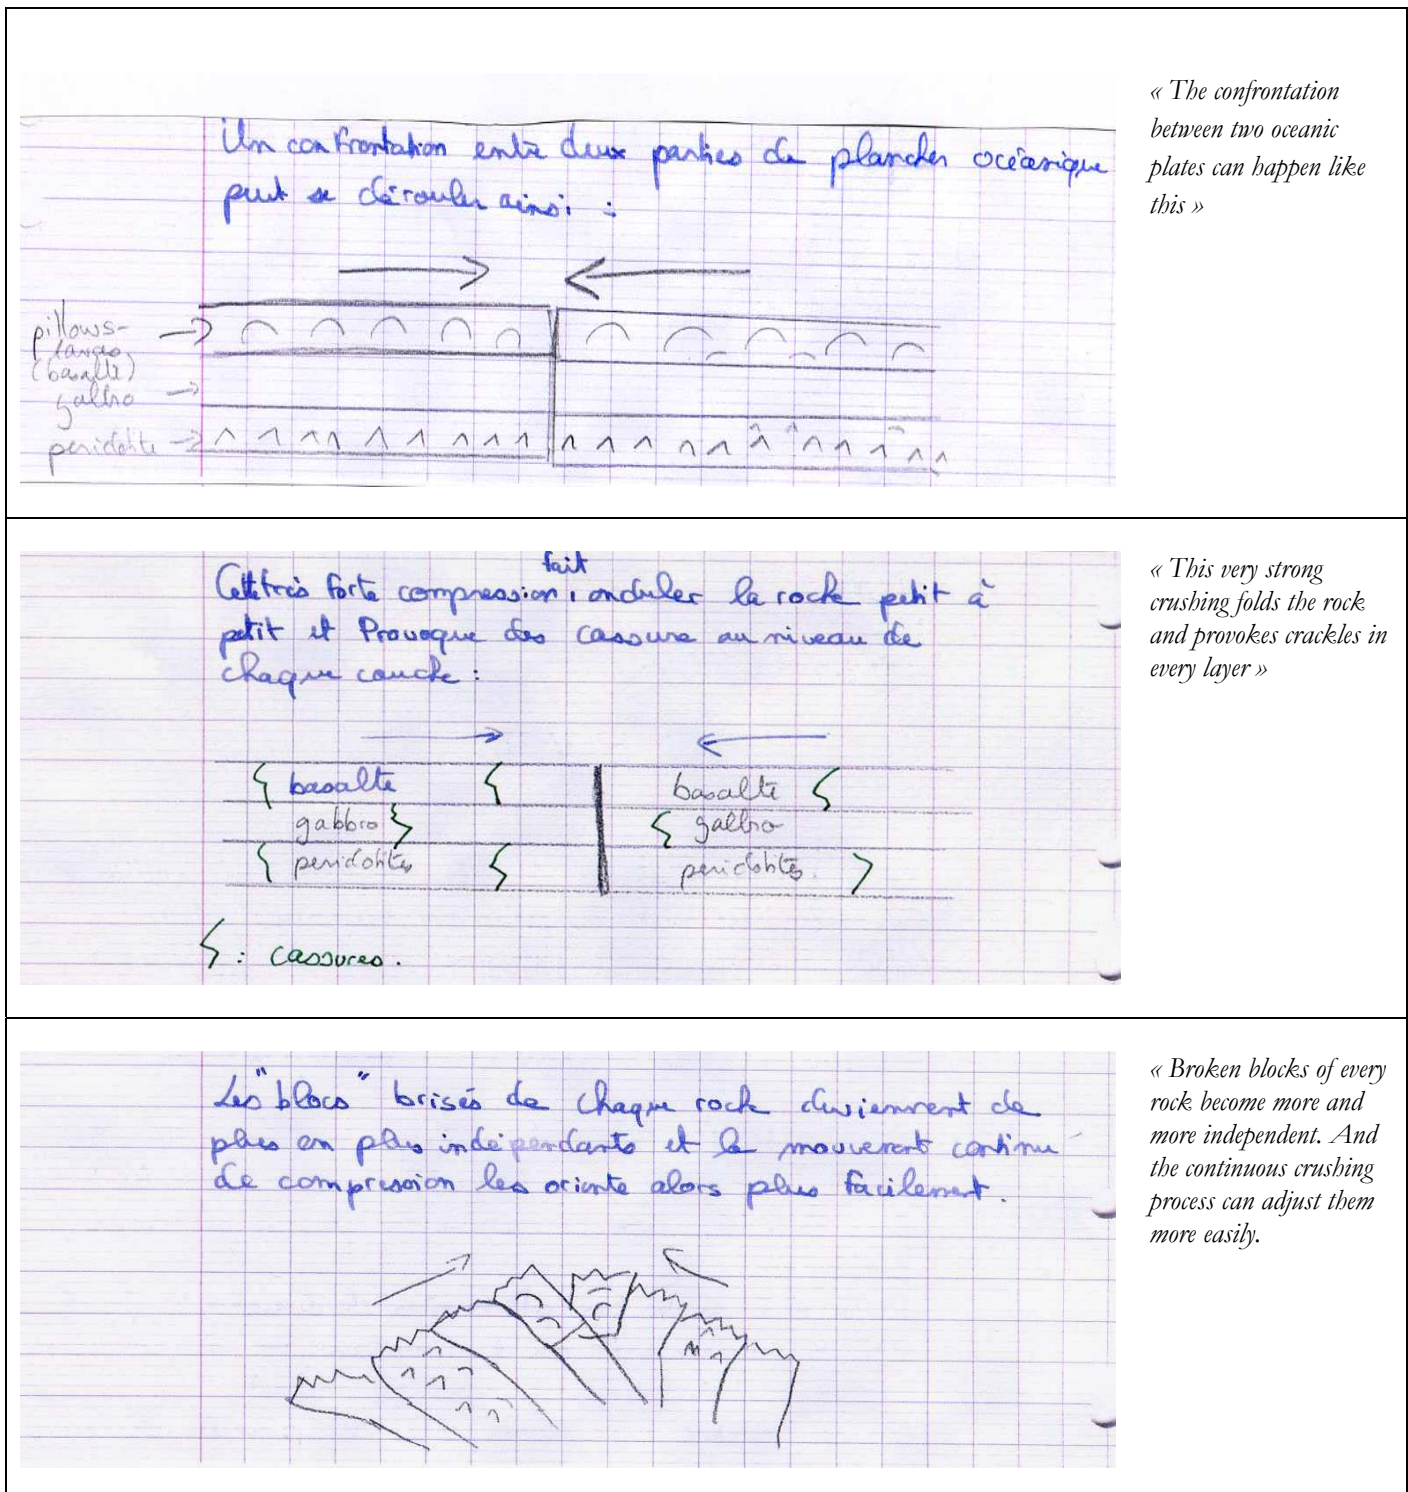 Un confrontation entre deux parties de plancher océanique
peut se dérouler ainsi :
pillows-
lavas
(basalte)
gabbro
peridotite
« The confrontation
between two oceanic
plates can happen like
this »
fait
Cette très forte compression, onduler la roche petit à
petit et Provoque des cassure au niveau de
chaque couche :
basalte
basalte
gabbro
gabbro
peridotites
peridotites
: cassures.
« This very strong
crushing folds the rock
and provokes crackles in
every layer »
Les "blocs" brisés de chaque roche deviennent de
plus en plus indépendants et le mouvement continu
de compression les oriente alors plus facilement.
« Broken blocks of every
rock become more and
more independent. And
the continuous crushing
process can adjust them
more easily.